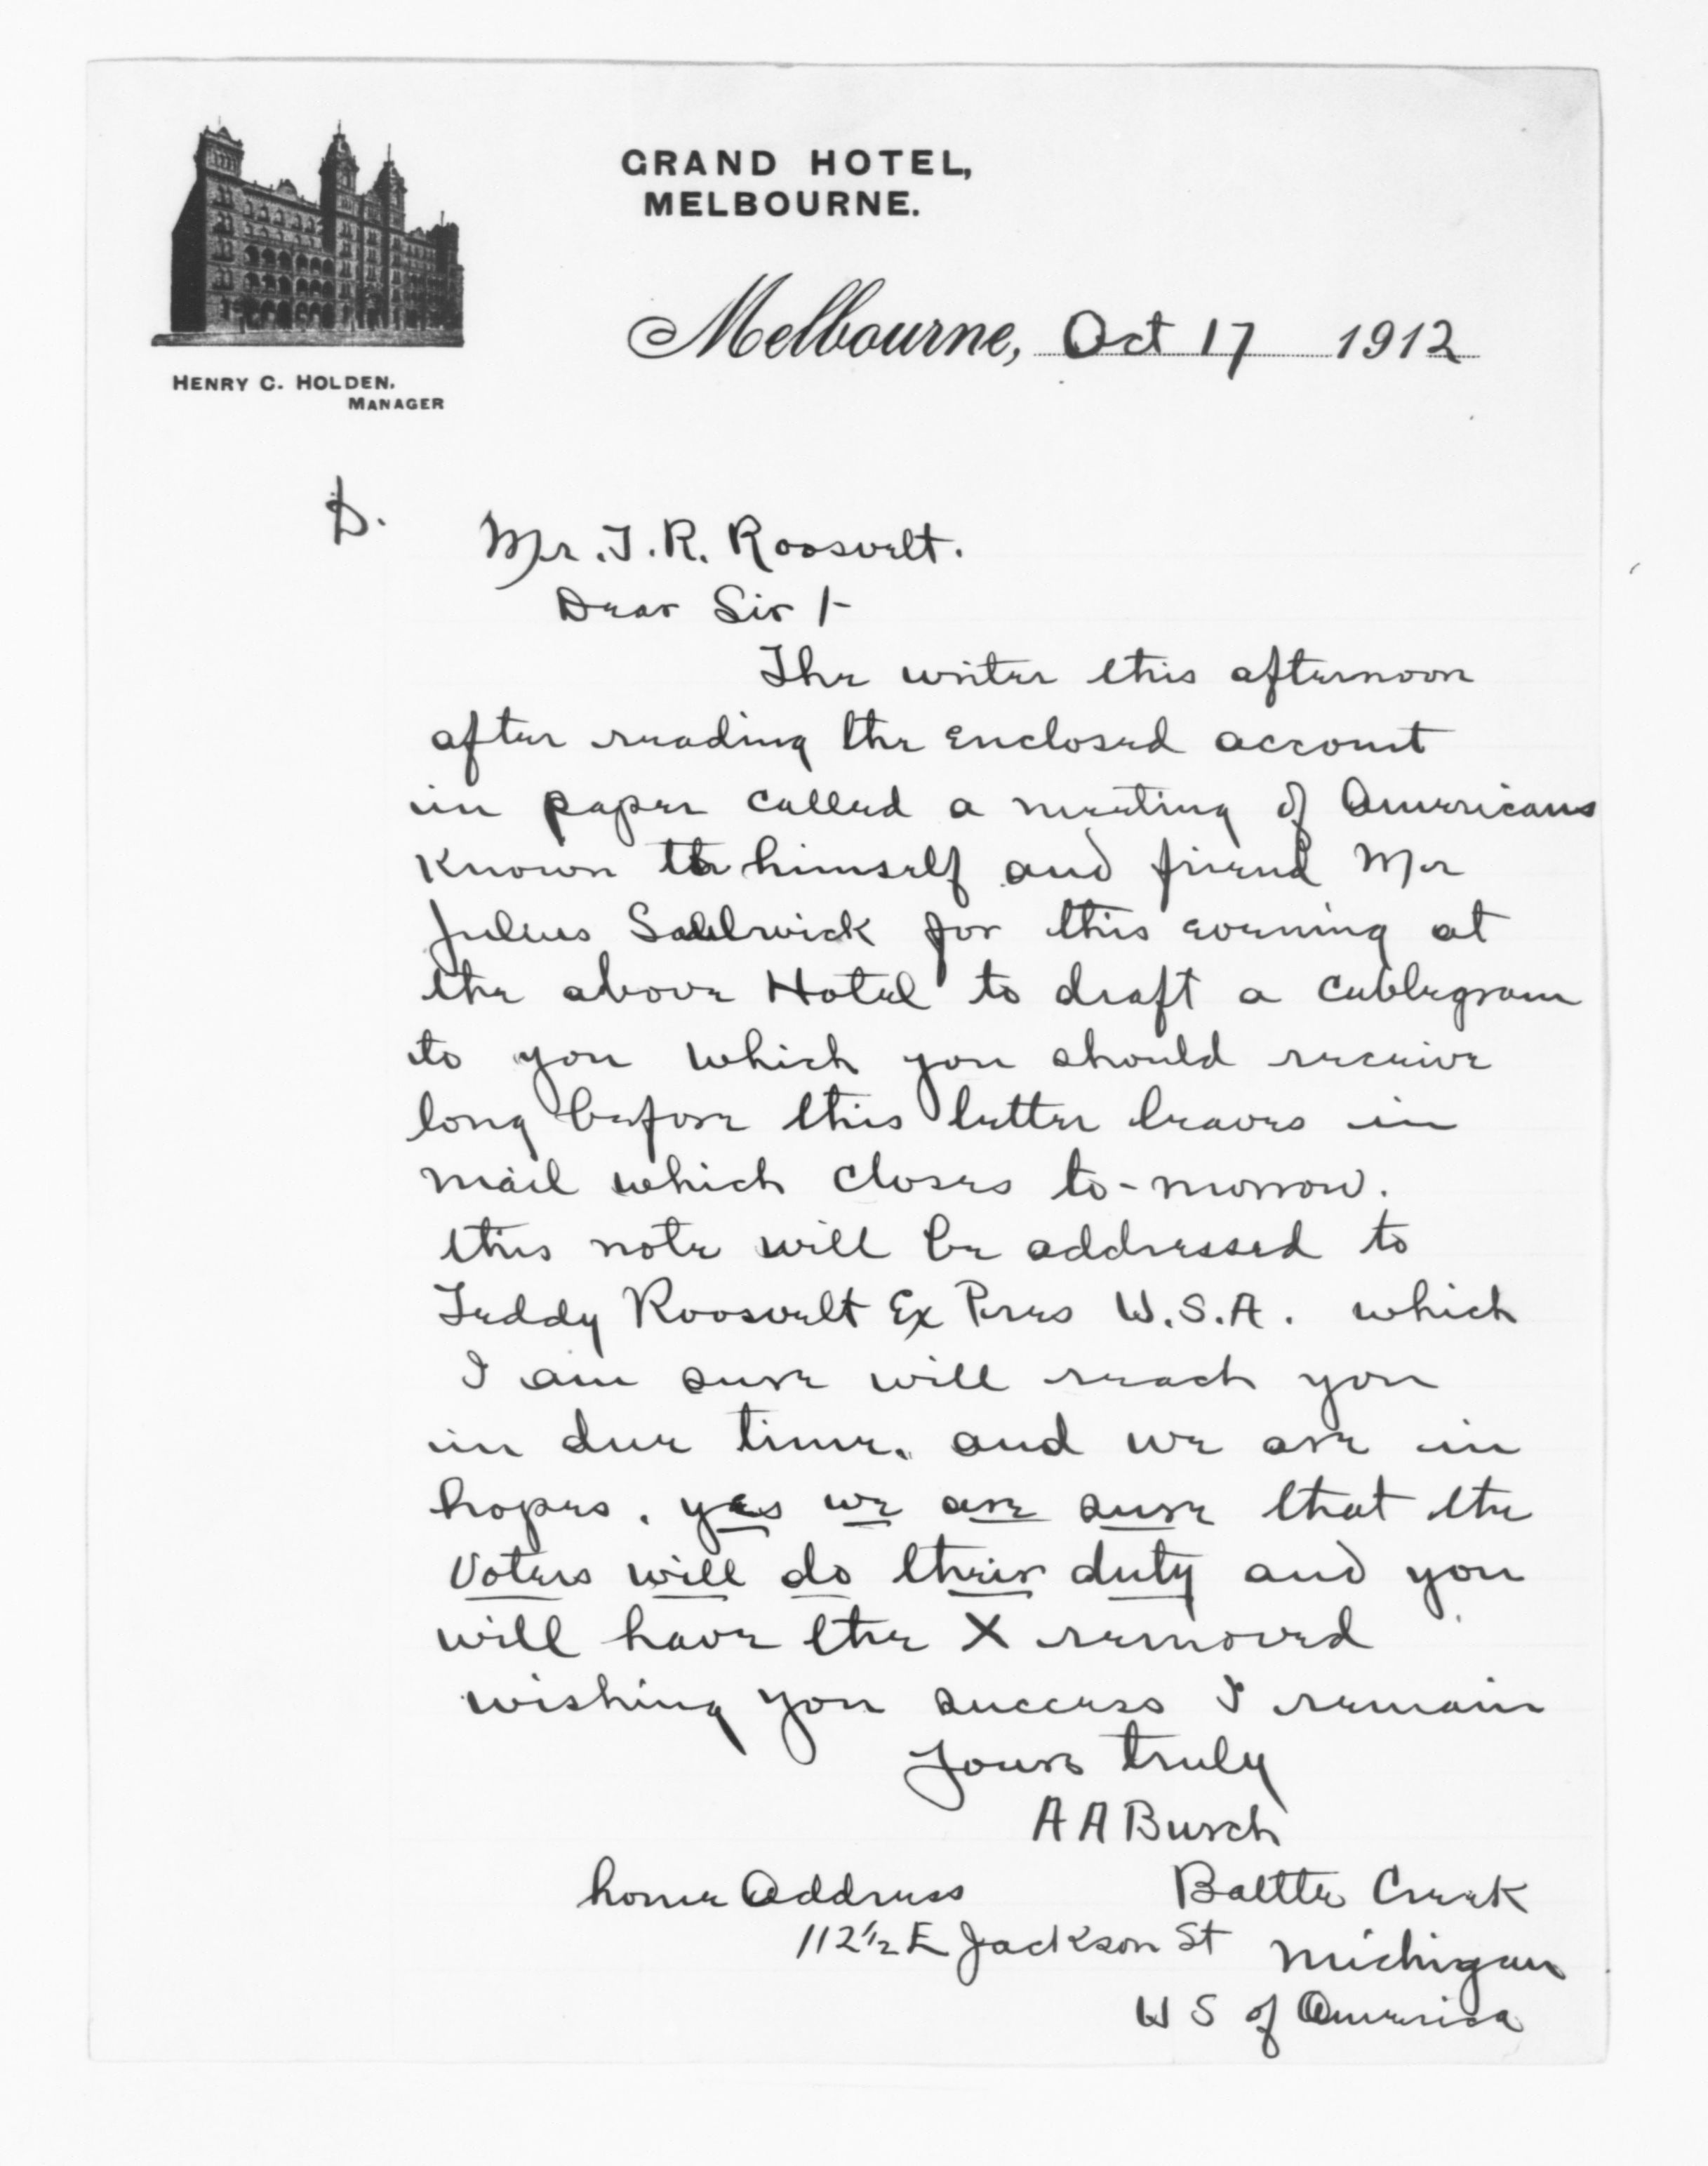 GRAND HOTEL,
MELBOURNE.
Melbourne, Oct 17 1912
HENRY C. HOLDEN.
MANAGER
Mr. T. R. Roosvelt.
Dear Sir :-
The writer this afternoon
after reading the enclosed account
in paper called a meeting of Americans
known to himself and friend Mr
Julius for this evening at
the above Hotel to draft a cablegram
to you which you should receive
long before this letter leaves in
mail which closes to-morrow.
this note will be addressed to
Teddy Roosvelt Ex Pres U.S.A. which
I am sure will reach you
in due time. and we are in
hopes. yes we are sure that the
Voters will do their duty and you
will have the X removed
wishing you success I remain
Yours truly
A A Burch
home Address Battle Creek
112 1/2 E Jackson St Michigan
U S of America